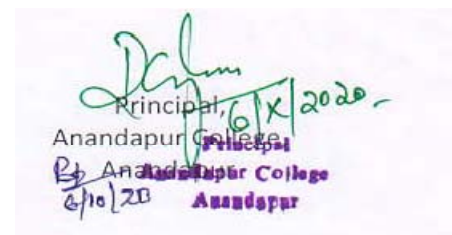 6/X/2020
Principal,
Anandapur College
Anandapur
Principal
Anandapur College
Anandapur
6/10/20